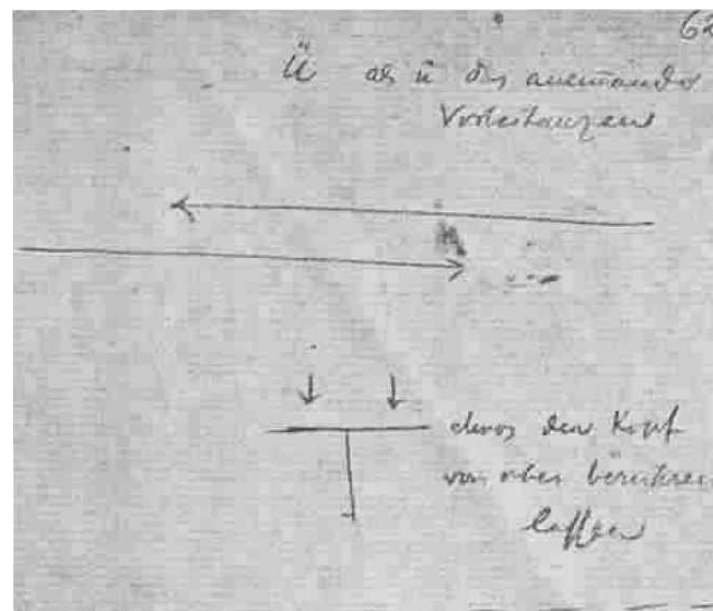 62
Ü als ü des aneinander
Vorbeitanzens
etwas den Kopf
von oben berühren
lassen